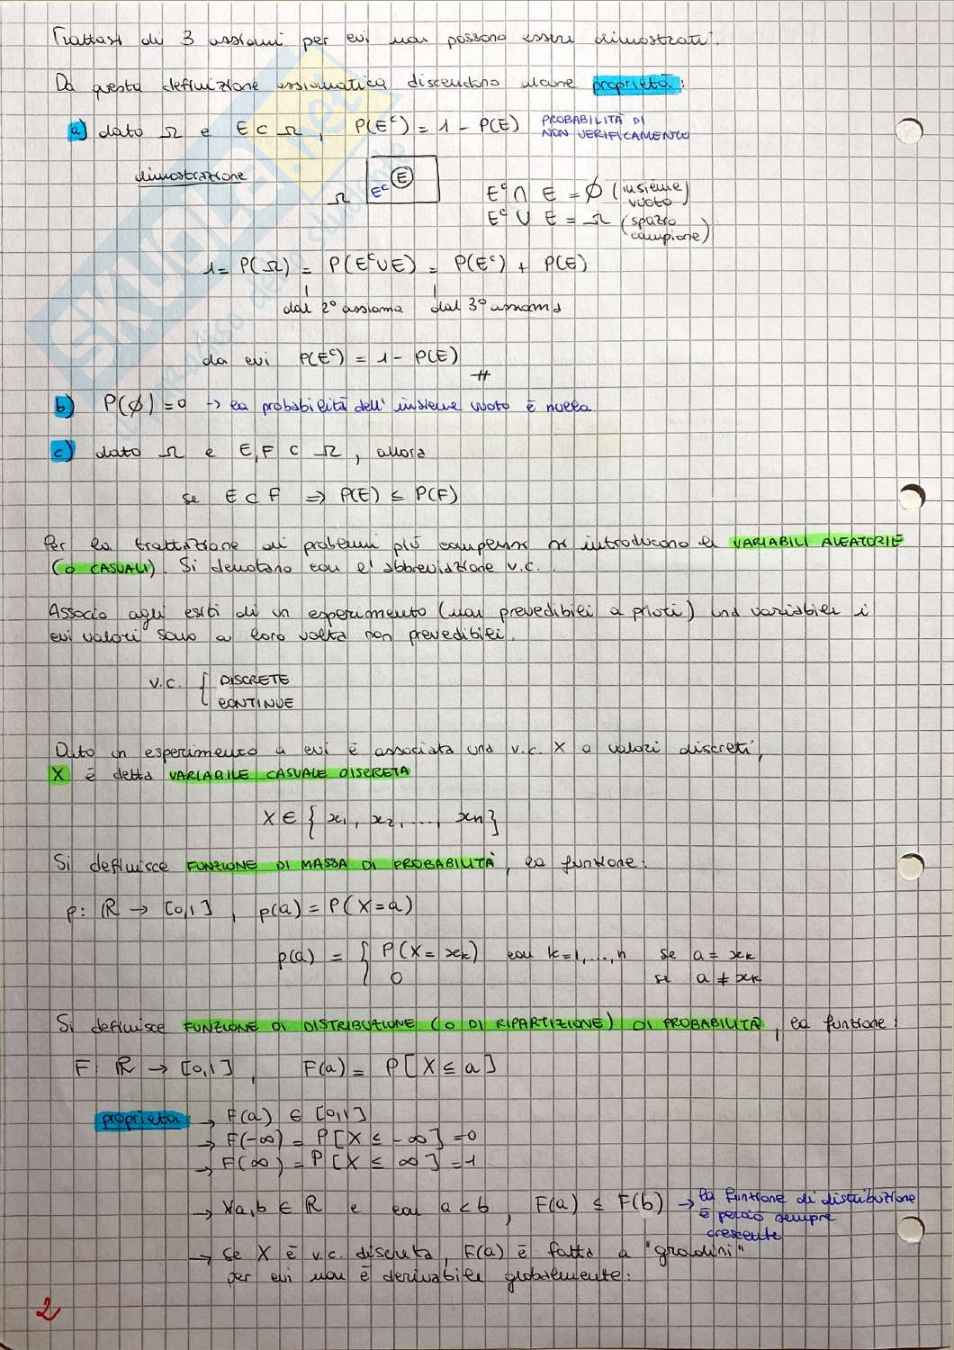 Trattasi di 3 assiomi per cui non possono essere dimostrati.
Da questa definizione assiomatica discendono alcune proprietà:
a) dato Ω e E ⊂ Ω, P(Eᶜ) = 1 - P(E) PROBABILITÀ DI
NON VERIFICAMENTO
dimostrazione
Ω Eᶜ E
Eᶜ ∩ E = ∅ (insieme vuoto)
Eᶜ ∪ E = Ω (spazio campione)
1 = P(Ω) = P(Eᶜ∪E) = P(Eᶜ) + P(E)
dal 2° assioma dal 3° assioma
da cui P(Eᶜ) = 1 - P(E)
#
b) P(∅) = 0 → la probabilità dell'insieme vuoto è nulla
c) dato Ω e E, F ⊂ Ω, allora
se E ⊂ F ⇒ P(E) ≤ P(F)
Per la trattazione di problemi più complessi si introducono le VARIABILI ALEATORIE
(O CASUALI). Si denotano con l'abbreviazione v.c.
Associo agli esiti di un esperimento (non prevedibili a priori) una variabile i
cui valori sono a loro volta non prevedibili.
v.c. { DISCRETE
CONTINUE
Dato un esperimento a cui è associata una v.c. X a valori discreti,
X è detta VARIABILE CASUALE DISCRETA
X ∈ { x₁, x₂, ..., xn }
Si definisce FUNZIONE DI MASSA DI PROBABILITÀ, la funzione:
p: ℝ → [0,1], p(a) = P(X=a)
p(a) = { P(X = xk) con k=1,...,n se a = xk
0 se a ≠ xk
Si definisce FUNZIONE DI DISTRIBUZIONE (O DI RIPARTIZIONE) DI PROBABILITÀ, la funzione:
F: ℝ → [0,1], F(a) = P[X ≤ a]
proprietà → F(a) ∈ [0,1]
→ F(-∞) = P[X ≤ -∞] = 0
→ F(∞) = P[X ≤ ∞] = 1
→ ∀a,b ∈ ℝ e con a<b, F(a) ≤ F(b) → la funzione di distribuzione
è perciò sempre
crescente
→ se X è v.c. discreta, F(a) è fatta a "gradini"
per cui non è derivabile globalmente:
2